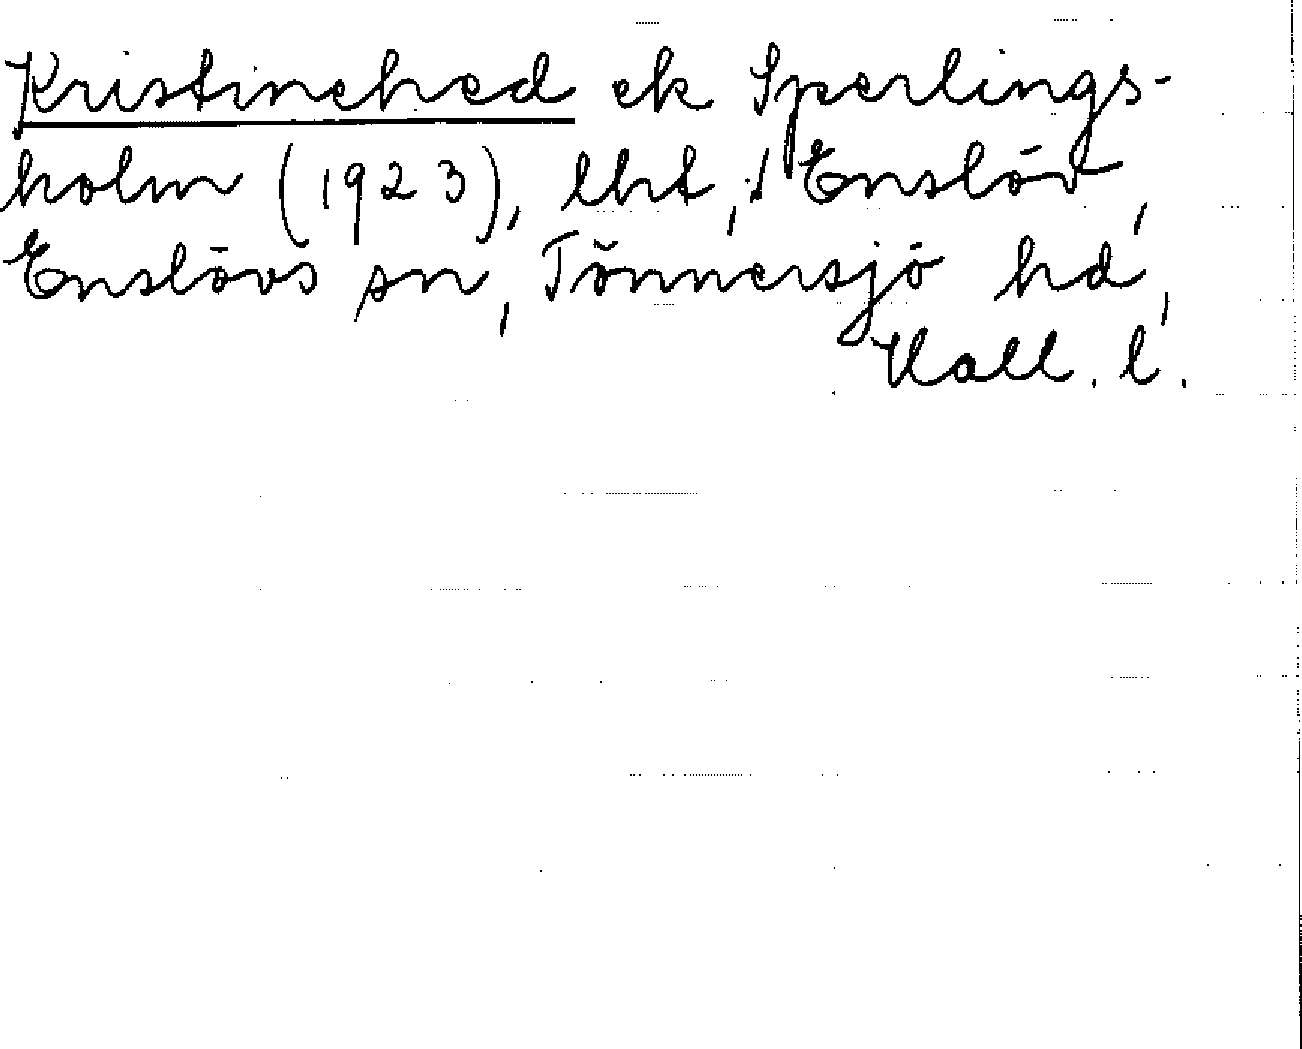 Kristinehed ek Sperlings-
holm (1923), lht, i Enslöv,
Enslövs sn, Tönnersjö hd,
Hall. l.